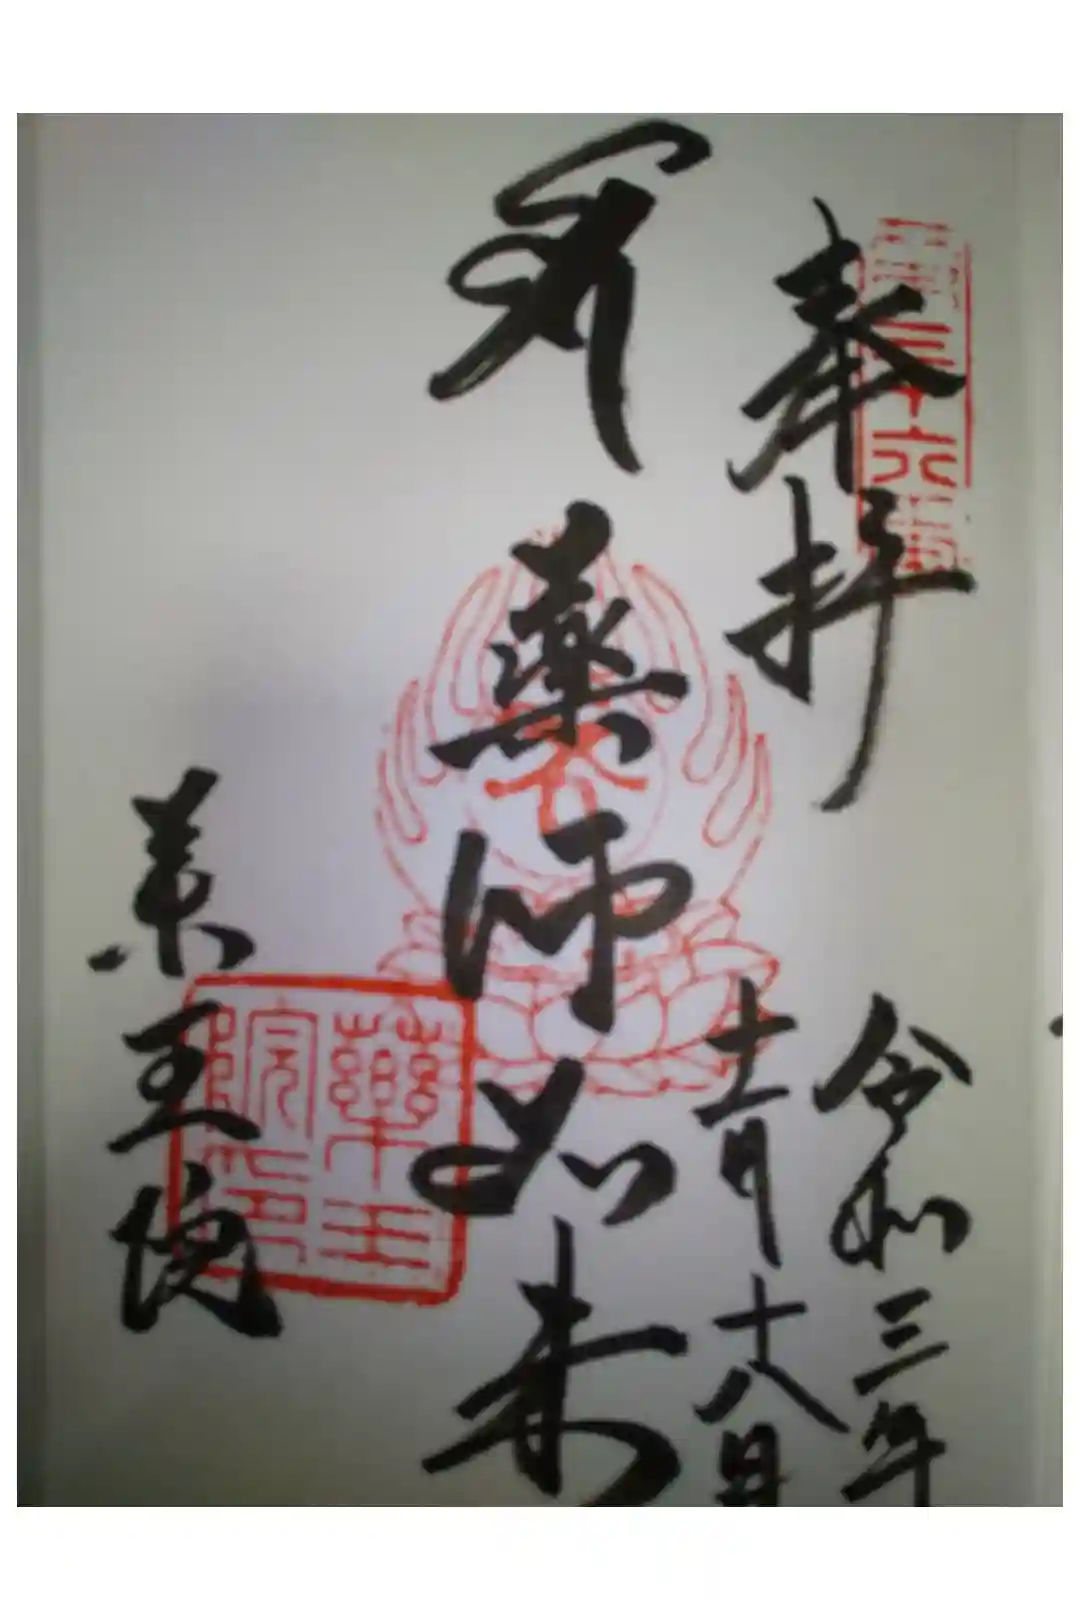 奉拝
令和三年
十一月十八日
薬師如来
薬王院
三十六
薬王
院印